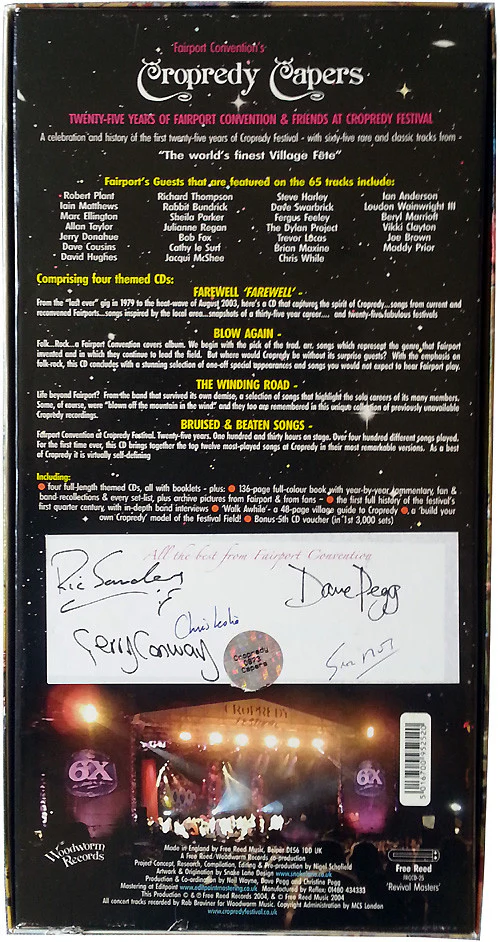 Fairport Convention's
Cropredy Capers
TWENTY-FIVE YEARS OF FAIRPORT CONVENTION & FRIENDS AT CROPREDY FESTIVAL
A celebration and history of the first twenty-five years of Cropredy Festival - with sixty-five rare and classic tracks from -
"The world's finest Village Fête"
Fairport's Guests that are featured on the 65 tracks include:
Robert Plant Richard Thompson Steve Harley Ian Anderson
Iain Matthews Rabbit Bundrick Dave Swarbrick Loudon Wainwright III
Marc Ellington Sheila Parker Fergus Feeley Beryl Marriott
Allan Taylor Julianne Regan The Dylan Project Vikki Clayton
Jerry Donahue Bob Fox Trevor Lucas Joe Brown
Dave Cousins Cathy le Surf Brian Maxine Maddy Prior
David Hughes Jacqui McShee Chris While
Comprising four themed CDs:
FAREWELL 'FAREWELL' -
From the "last ever" gig in 1979 to the heat-wave of August 2003, here's a CD that captures the spirit of Cropredy...songs from current and
reconvened Fairports...songs inspired by the local area...snapshots of a thirty-five year career.... and twenty-five fabulous festivals
BLOW AGAIN -
Folk...Rock...a Fairport Convention covers album. We begin with the pick of the trad. arr. songs which represent the genre that Fairport
invented and in which they continue to lead the field. But where would Cropredy be without its surprise guests? With the emphasis on
folk-rock, this CD concludes with a stunning selection of one-off special appearances and songs you would not expect to hear Fairport play.
THE WINDING ROAD -
Life beyond Fairport? From the band that survived its own demise, a selection of songs that highlight the solo careers of its many members.
Some, of course, were "blown off the mountain in the wind" and they too are remembered in this unique collection of previously unavailable
Cropredy recordings.
BRUISED & BEATEN SONGS -
Fairport Convention at Cropredy Festival. Twenty-five years. One hundred and thirty hours on stage. Over four hundred different songs played.
For the first time ever, this CD brings together the top twelve most-played songs at Cropredy in their most remarkable versions. As a best
of Cropredy it is virtually self-defining
Including:
● four full-length themed CDs, all with booklets - plus: ● 136-page full-colour book with year-by-year commentary, fan &
band-recollections & every set-list, plus archive pictures from Fairport & from fans - ● the first full history of the festival's
first quarter century, with in-depth band interviews ● 'Walk Awhile'- a 48-page village guide to Cropredy ● a 'build your
own Cropredy' model of the Festival Field! ● Bonus-5th CD voucher (in 1st 3,000 sets)
All the best from Fairport Convention
Ric Sanders
Dave Pegg
Chris Leslie
Gerry Conway
Cropredy
0873
Capers
CROPREDY
FESTIVAL
6X
6X
5016700995252
Woodworm
Records
Made in England by Free Reed Music, Belper DE56 1DD UK
A Free Reed/Woodworm Records co-production
Project Concept, Research, Compilation, Editing & Pre-production by Nigel Schofield
Artwork & Origination by Snake Lane Design www.snakelane.co.uk
Production & Co-ordination by Neil Wayne, Dave Pegg and Christine Pegg
Mastering at Editpoint www.editpointmastering.co.uk Manufactured by Reflex: 01480 434333
This Production © & ℗ Free Reed Records 2004, & © Free Reed Music 2004
All concert tracks recorded by Rob Braviner for Woodworm Music. Copyright Administration by MCS London
www.cropredyfestival.co.uk
Free Reed
FRQCD-25
'Revival Masters'